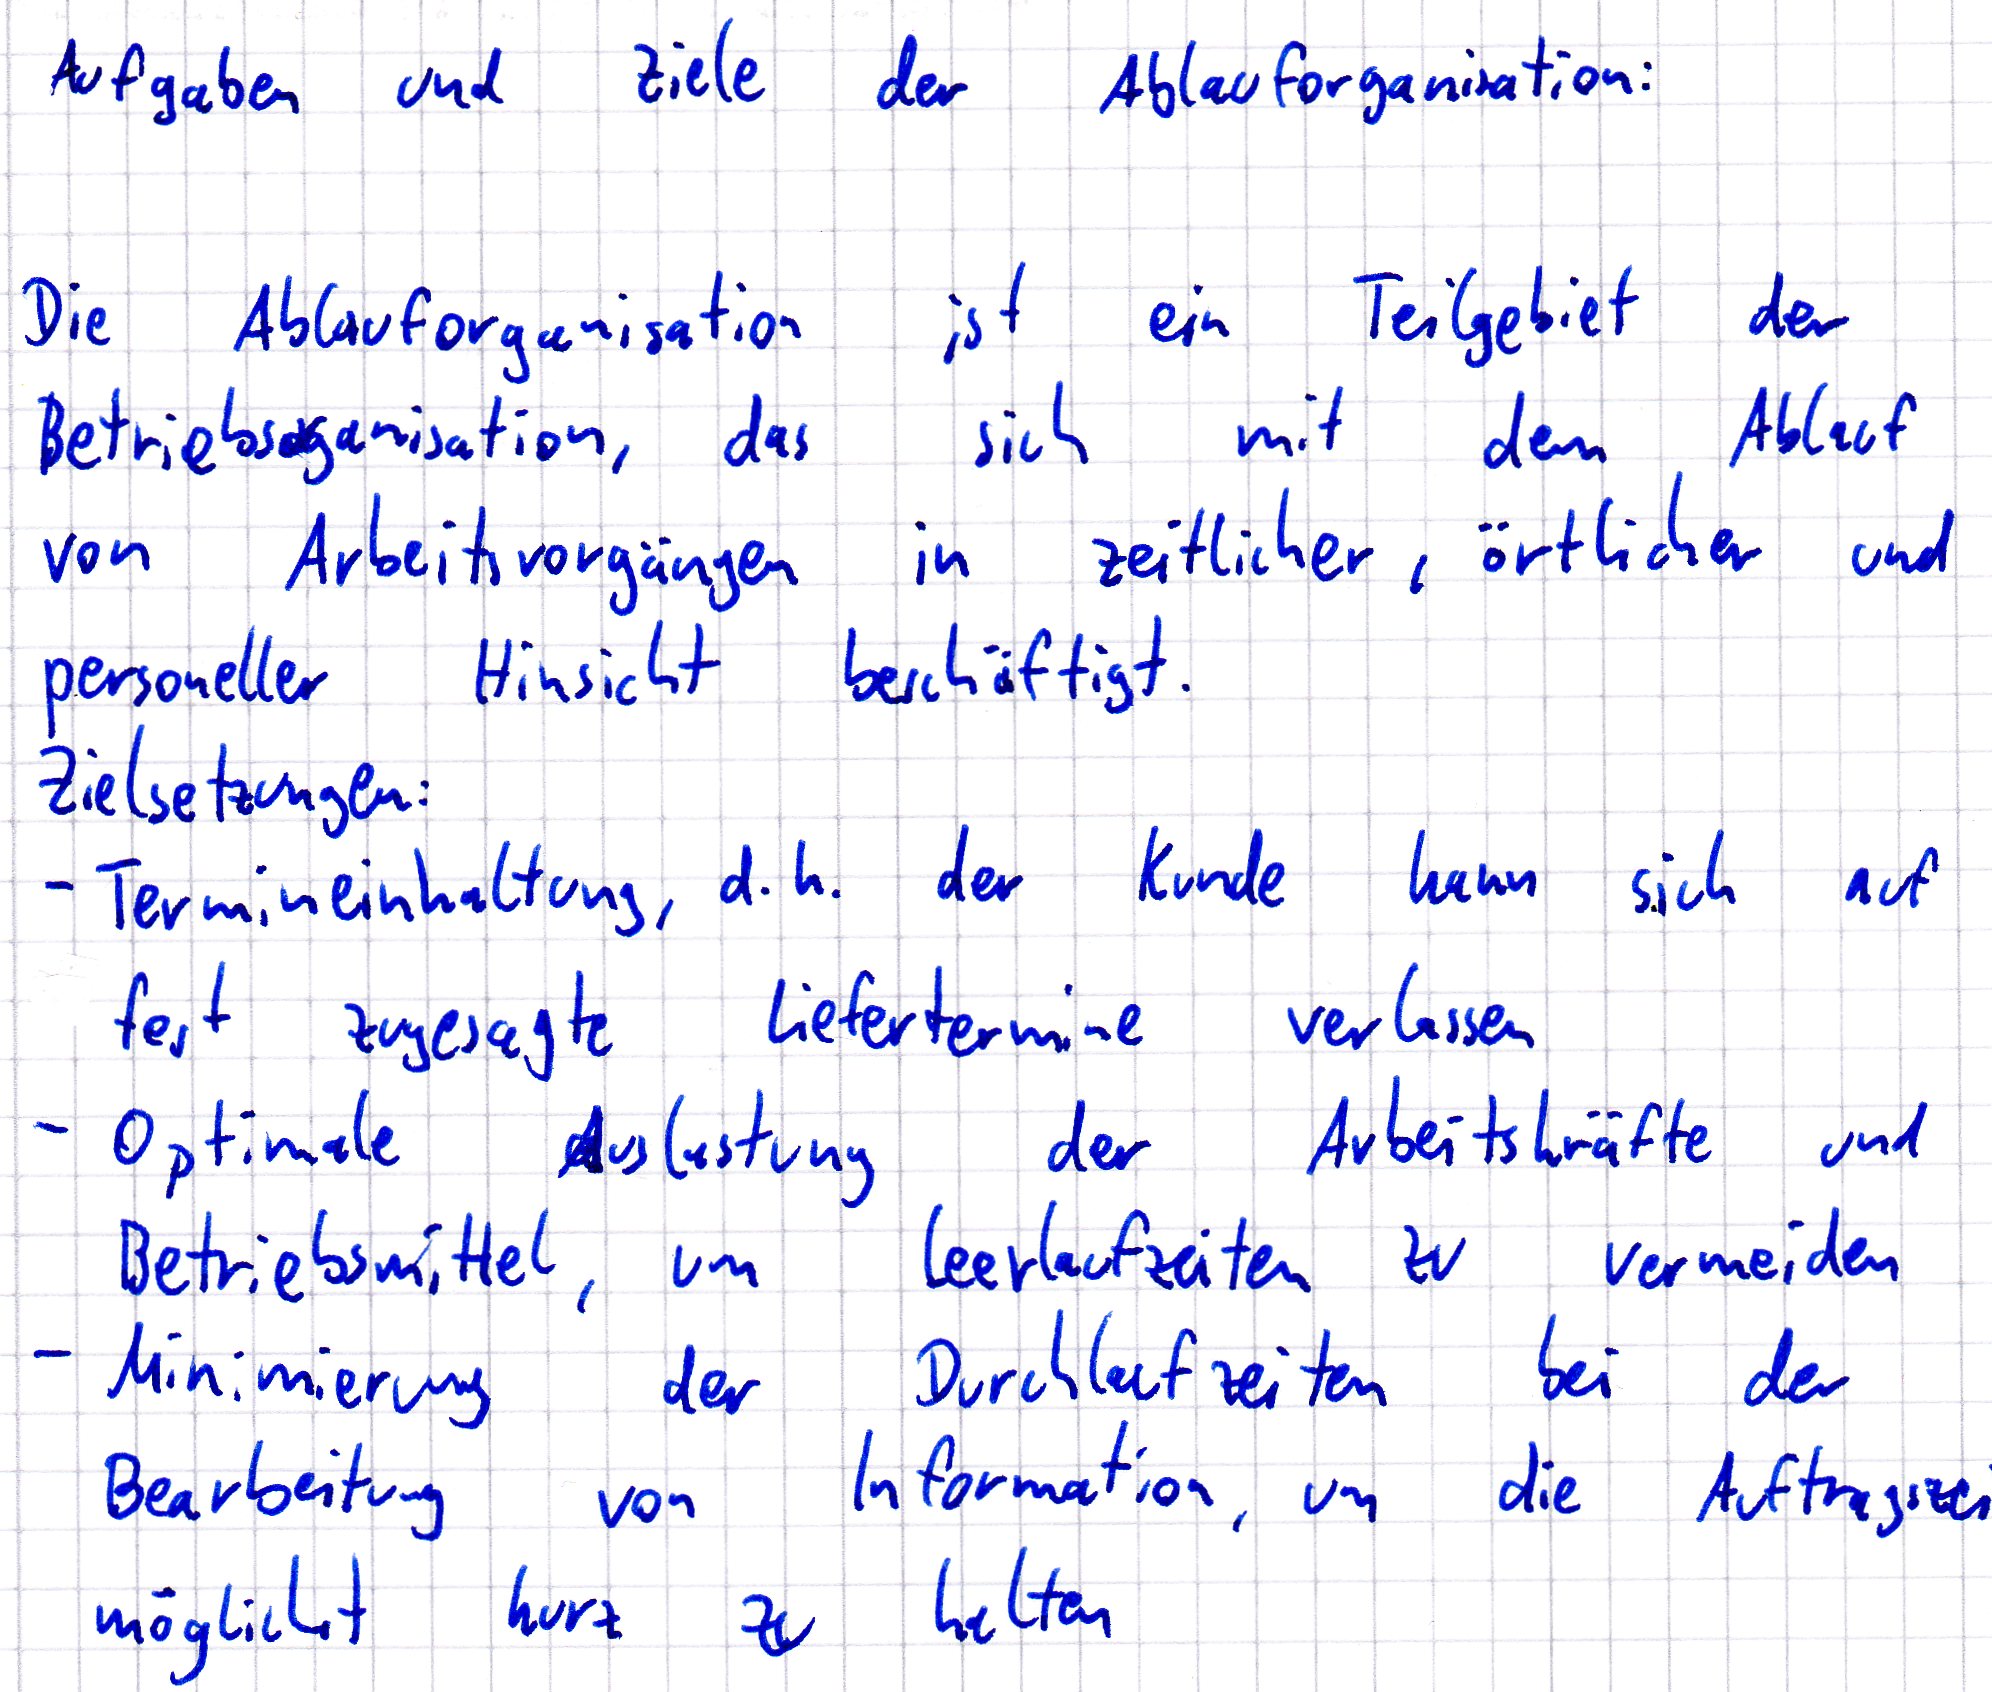 Aufgaben und Ziele der Ablauforganisation:
Die Ablauforganisation ist ein Teilgebiet der
Betriebsorganisation, das sich mit dem Ablauf
von Arbeitsvorgängen in zeitlicher, örtlicher und
personeller Hinsicht beschäftigt.
Zielsetzungen:
- Termineinhaltung, d.h. der Kunde kann sich auf
fest zugesagte Liefertermine verlassen
- Optimale Auslastung der Arbeitskräfte und
Betriebsmittel, um Leerlaufzeiten zu vermeiden
- Minimierung der Durchlaufzeiten bei der
Bearbeitung von Information, um die Auftragszei
möglichst kurz zu halten